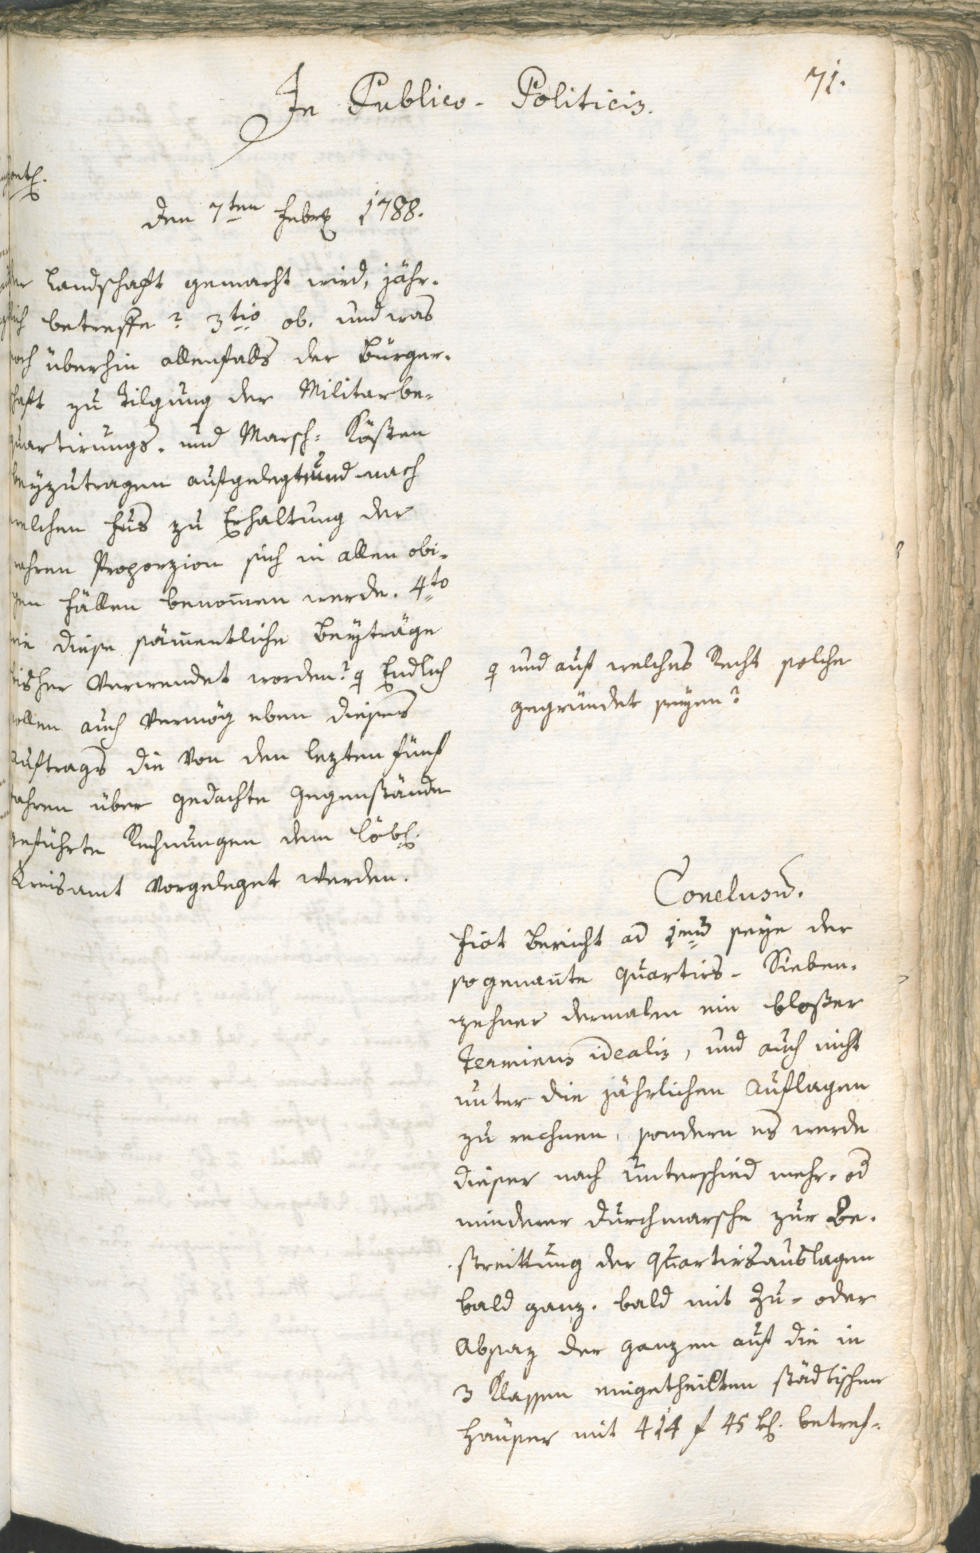 71.
In Publico-Politicis.
den 7ten Febr 1788.
der Landschaft gemacht wird, jähr-
lich betreffe? 3tio ob, und was
noch überhin allenfalls der Bürger-
schaft zu Tilgung der Militarbe-
quartirungs- und Marsch-Kösten
beyzutragen aufgelegt und nach
welchen Fus zu Erhaltung der
wahren Proporzion sich in allen obi-
gen Fällen benommen werde. 4to
wie diese sämentliche Beyträge
bisher verwendet worden? q Endlich
sollen auch vermög eben dieses
Auftrags die von den lezten fünf
Jahren über gedachte Gegenstände
geführte Rechnungen dem löbl.
Kreisamt vorgeleget werden.
q und auf welches Recht solche
gegründet seyen?
Conclusum.
Fiat Bericht ad 1mum seye der
so genante Quartirs-Sieben-
zehner dermalen ein bloßer
Terminus idealis, und auch nicht
unter die jährlichen Auflagen
zu rechnen, sondern es werde
dieser nach Unterschied mehr- od
minderer Durchmarsche zur Be-
streittung der Quartirsauslagen
bald ganz, bald mit Zu- oder
Absaz der ganzen auf die in
3 Klassen eingetheilten städtischen
Häuser mit 414 f 45 k. betref-